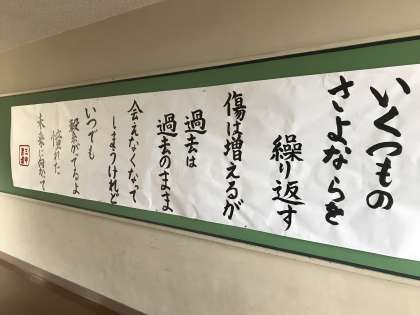 いくつもの
さよならを
繰り返す
傷は増えるが
過去は
過去のまま
会えなくなって
しまうけれど
いつでも
繋がてるよ
憧れた
未来に向かって